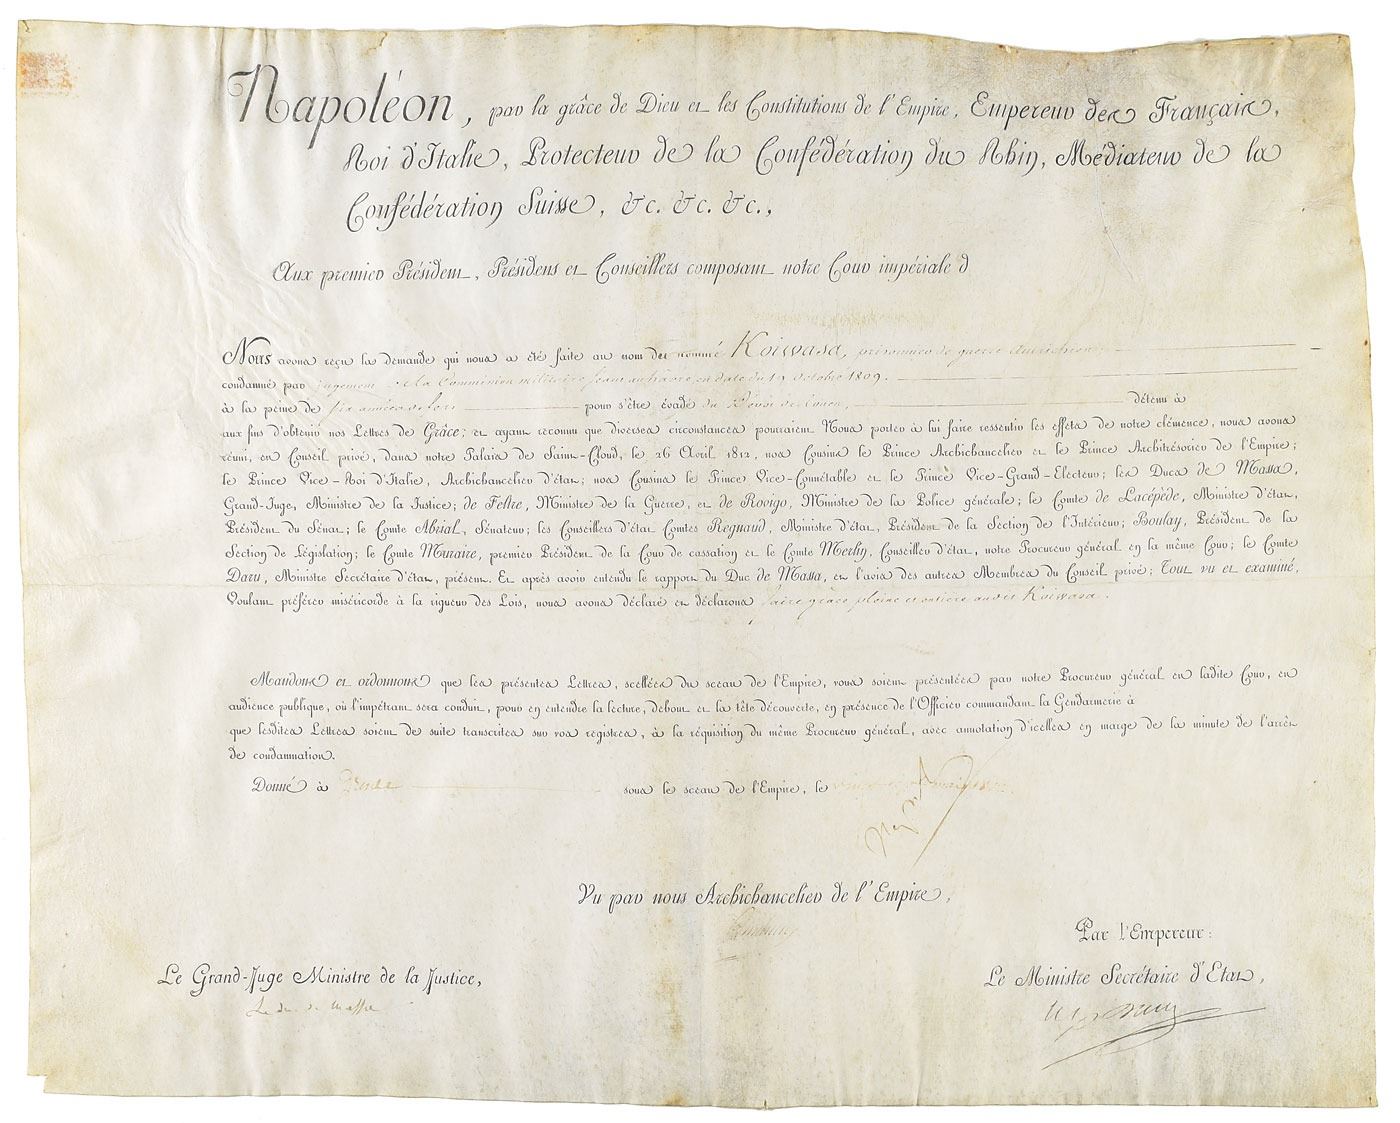 Napoléon, par la grâce de Dieu et les Constitutions de l'Empire, Empereur des Français,
Roi d'Italie, Protecteur de la Confédération du Rhin, Médiateur de la
Confédération Suisse, &c. &c. &c.,
Aux premier Président, Présidens et Conseillers composant notre Cour impériale d
Nous avons reçu la demande qui nous a été faite au nom des nommé Koiwasa, prisonnier de guerre autrichien
condamné par jugement de la Commission militaire séant au havre en date du octobre 1809.
à la peine de six années de fers pour s'être évadé du détenu à
aux fins d'obtenir nos Lettres de Grâce; et ayant reconnu que diverses circonstances pourraient Nous porter à lui faire ressentir les effets de notre clémence, nous avons
réuni, en Conseil privé, dans notre Palais de Saint-Cloud, le 26 Avril 1812, nos Cousins le Prince Archichancelier et le Prince Architrésorier de l'Empire;
le Prince Vice-Roi d'Italie, Archichancelier d'état; nos Cousins le Prince Vice-Connétable et le Prince Vice-Grand-Electeur; les Ducs de Massa,
Grand-Juge, Ministre de la Justice; de Feltre, Ministre de la Guerre, et de Rovigo, Ministre de la Police générale; le Comte de Lacépède, Ministre d'état,
Président du Sénat; le Comte Abrial, Sénateur; les Conseillers d'état Comtes Regnaud, Ministre d'état, Président de la Section de l'Intérieur; Boulay, Président de la
Section de Législation; le Comte Muraire, premier Président de la Cour de cassation et le Comte Merlin, Conseiller d'état, notre Procureur général en la même Cour; le Comte
Daru, Ministre Secrétaire d'état, présent. Et après avoir entendu le rapport du Duc de Massa, et l'avis des autres Membres du Conseil privé; Tout vu et examiné,
Voulant préférer miséricorde à la rigueur des Lois, nous avons déclaré et déclarons faire grâce pleine et entière audit Koiwasa.
Mandons et ordonnons que les présentes Lettres, scellées du sceau de l'Empire, vous soient présentées par notre Procureur général en ladite Cour, en
audience publique, où l'impétrant sera conduit, pour en entendre la lecture, debout et la tête découverte, en présence de l'Officier commandant la Gendarmerie à
que lesdites Lettres soient de suite transcrites sur vos registres, à la réquisition du même Procureur général, avec annotation d'icelles en marge de la minute de l'arrêt
de condamnation.
Donné à sous le sceau de l'Empire, le
Nap
Vu par nous Archichancelier de l'Empire,
Par l'Empereur:
Le Grand-Juge Ministre de la Justice,
Le Ministre Secrétaire d'Etat,
Le duc de Massa